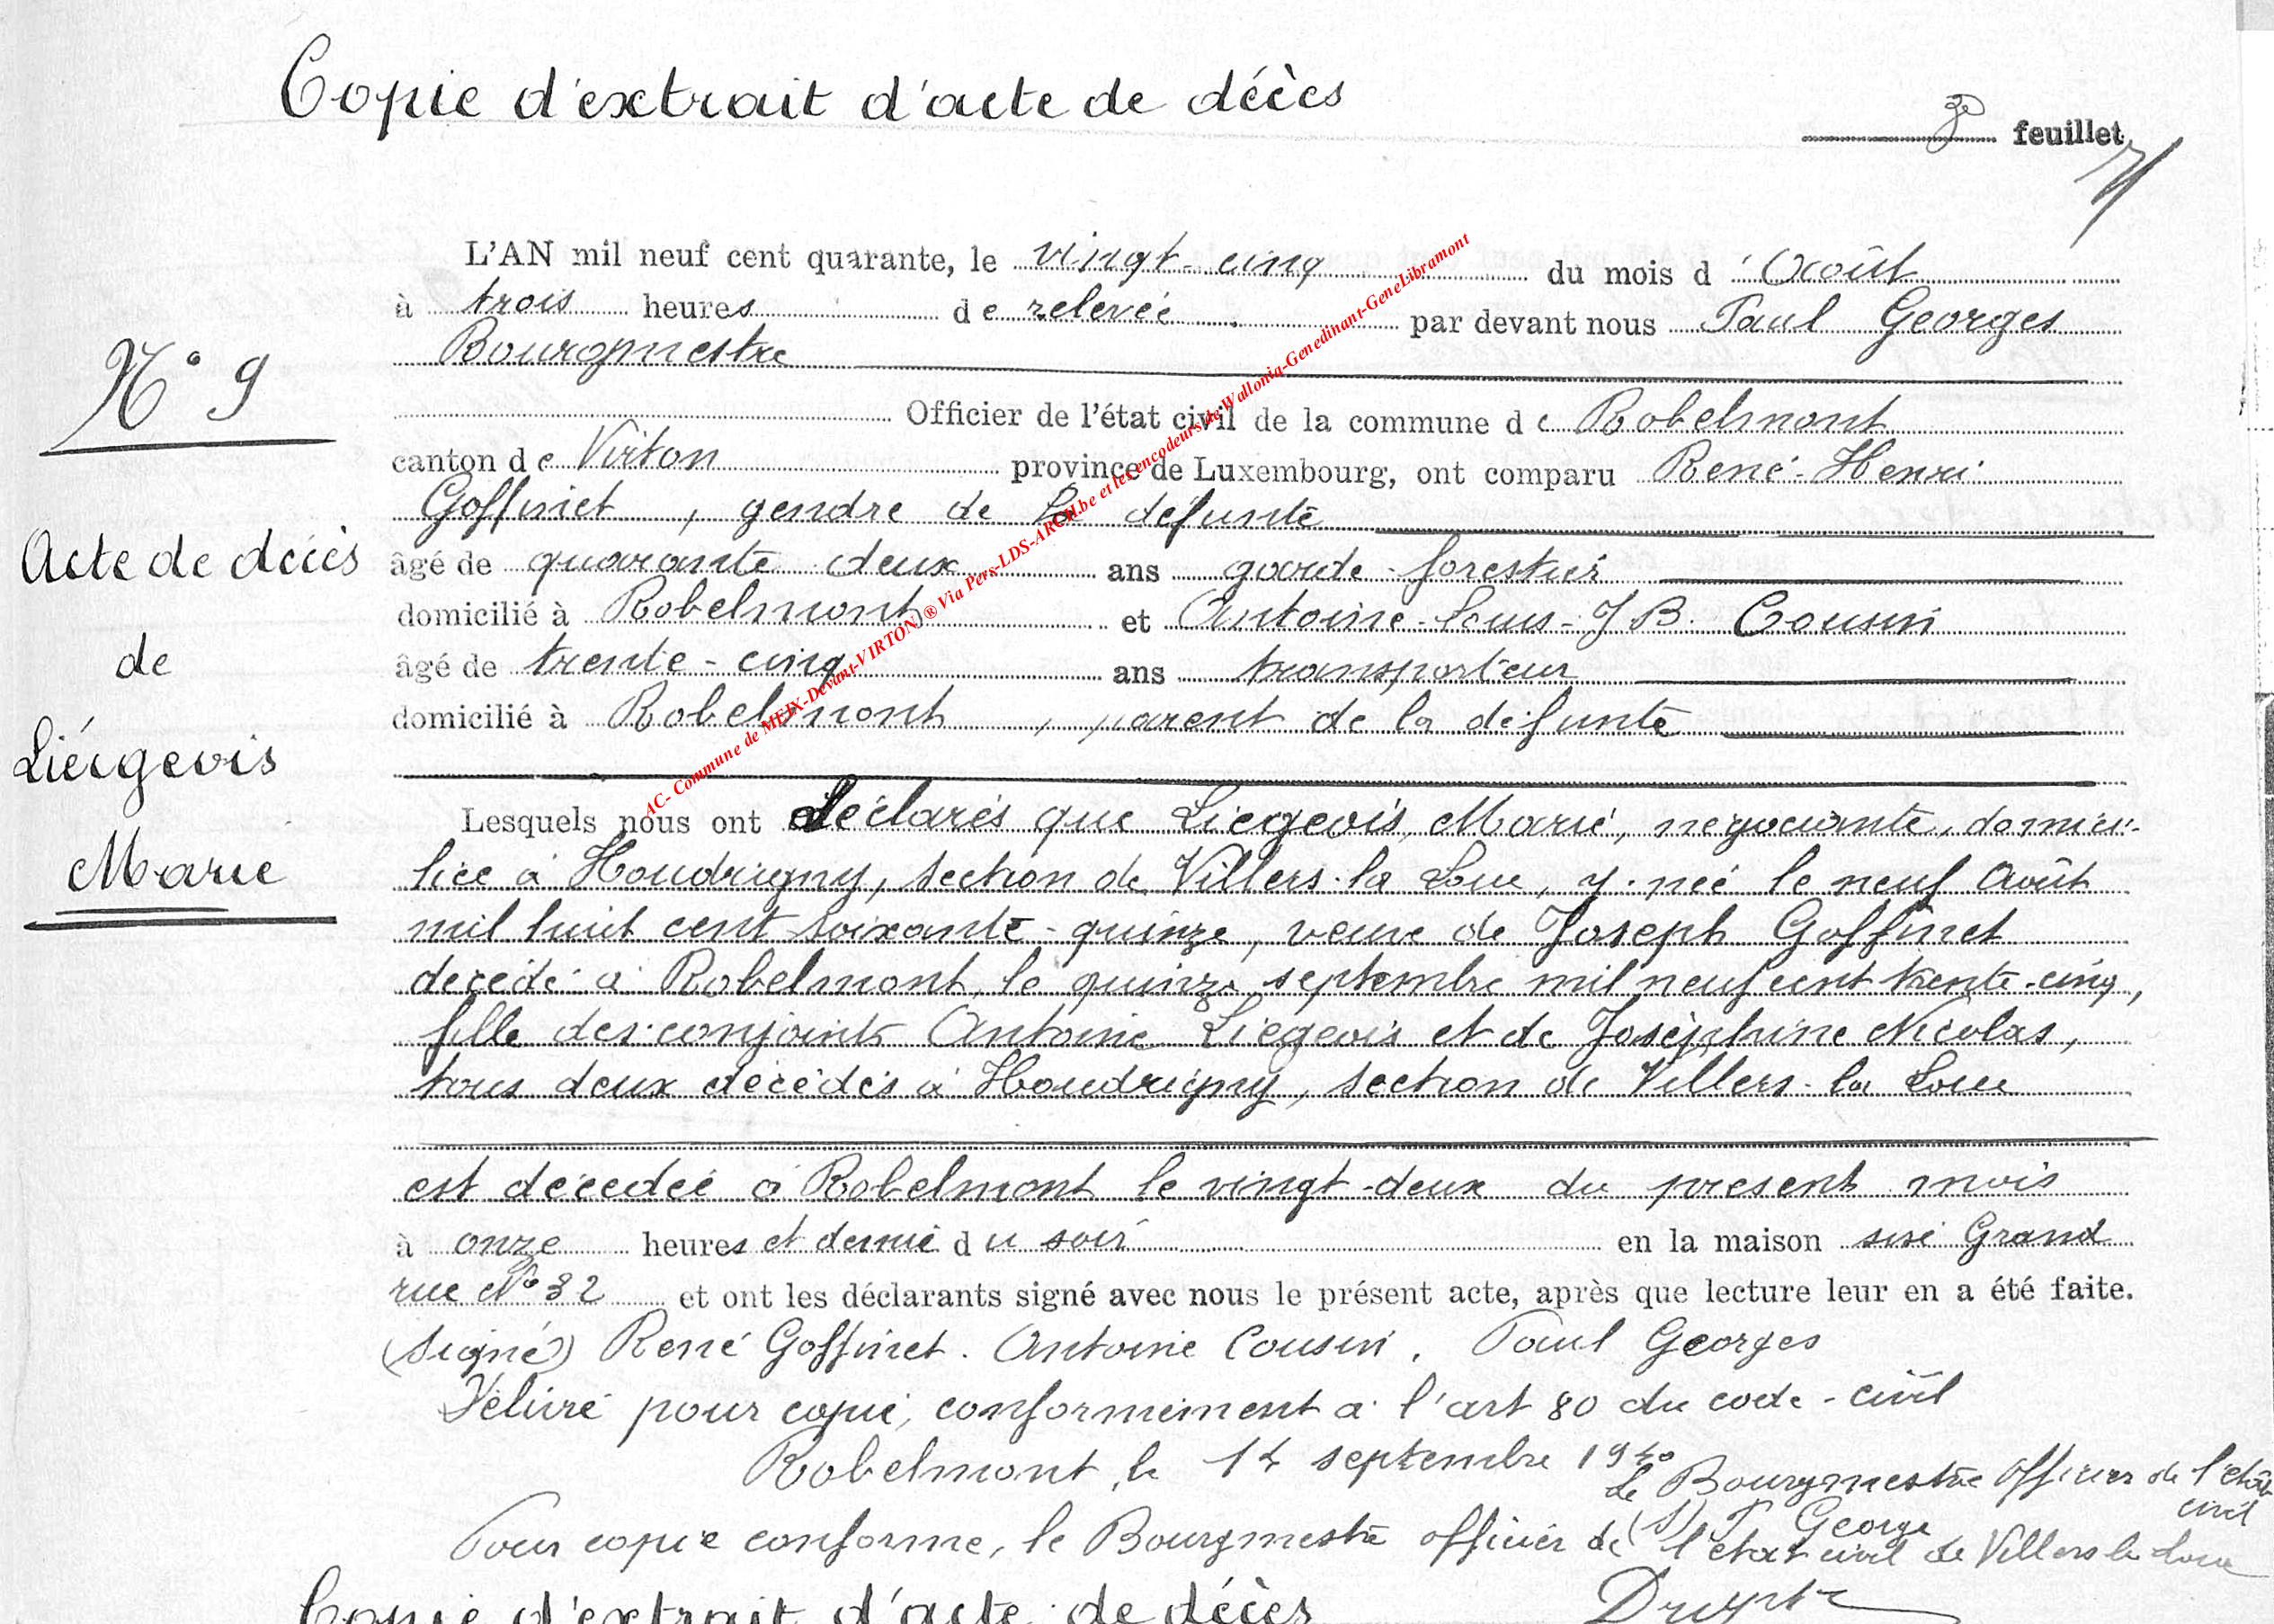 Copie d'extrait d'acte de décès
3e feuillet
L'AN mil neuf cent quarante, le vingt-cinq du mois d'Août
à trois heures de relevée par devant nous Paul Georges
Bourgmestre
N° 9
Officier de l'état civil de la commune de Robelmont
canton de Virton province de Luxembourg, ont comparu René-Henri
Goffinet, gendre de la défunte
Acte de décès
âgé de quarante deux ans garde-forestier
domicilié à Robelmont et Antoine-Louis-J.B. Cousin
de
âgé de trente-cinq ans transporteur
domicilié à Robelmont, parent de la défunte
Liégeois
Lesquels nous ont déclarés que Liégeois, Marie, négociante, domici-
Marie
liée à Houdrigny, section de Villers-la Loue, y née le neuf Août
mil huit cent soixante-quinze, veuve de Joseph Goffinet
décédé à Robelmont, le quinze septembre mil neuf cent trente-cinq,
fille des conjoints Antoine Liégeois et de Joséphine Nicolas,
tous deux décédés à Houdrigny, section de Villers-la Loue
est décédée à Robelmont le vingt-deux du présent mois
à onze heures et demie du soir en la maison sise Grand
rue N° 32 et ont les déclarants signé avec nous le présent acte, après que lecture leur en a été faite.
(signé) René Goffinet. Antoine Cousin. Paul Georges
Délivré pour copie, conformément à l'art 80 du code-civil
Robelmont, le 14 septembre 1940
Le Bourgmestre officier de l'état
civil
(s) P. George
Pour copie conforme, le Bourgmestre officier de l'état civil de Villers la Loue
Copie d'extrait d'acte de décès
AC- Commune de MEIX-Devant-VIRTON ® Via Pers-LDS-ARCH.be et les encodeurs de Wallonia-Genedinant-GeneLibramont